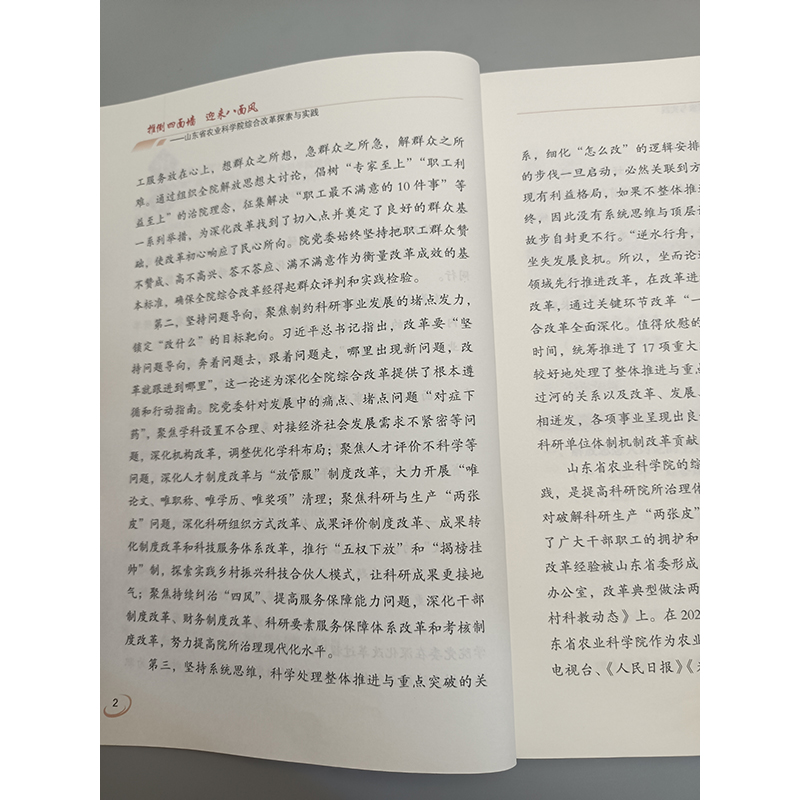 推倒四面墙 迎来八面风
——山东省农业科学院综合改革探索与实践
工服务放在心上，想群众之所想，急群众之所急，解群众之所
难。通过组织全院解放思想大讨论，倡树“专家至上”“职工利
益至上”的治院理念，征集解决“职工最不满意的10件事”等
一系列举措，为深化改革找到了切入点并奠定了良好的群众基
础，使改革初心响应了民心所向。院党委始终坚持把职工群众赞
不赞成、高不高兴、答不答应、满不满意作为衡量改革成效的基
本标准，确保全院综合改革经得起群众评判和实践检验。
第二，坚持问题导向，聚焦制约科研事业发展的堵点发力，
锁定“改什么”的目标靶向。习近平总书记指出，改革要“坚
持问题导向，奔着问题去，跟着问题走，哪里出现新问题，改
革就跟进到哪里”，这一论述为深化全院综合改革提供了根本遵
循和行动指南。院党委针对发展中的痛点、堵点问题“对症下
药”，聚焦学科设置不合理、对接经济社会发展需求不紧密等问
题，深化机构改革，调整优化学科布局；聚焦人才评价不科学等
问题，深化人才制度改革与“放管服”制度改革，大力开展“唯
论文、唯职称、唯学历、唯奖项”清理；聚焦科研与生产“两张
皮”问题，深化科研组织方式改革、成果评价制度改革、成果转
化制度改革和科技服务体系改革，推行“五权下放”和“揭榜挂
帅”制，探索实践乡村振兴科技合伙人模式，让科研成果更接地
气；聚焦持续纠治“四风”、提高服务保障能力问题，深化干部
制度改革、财务制度改革、科研要素服务保障体系改革和考核制
度改革，努力提高院所治理现代化水平。
第三，坚持系统思维，科学处理整体推进与重点突破的关
2
系，细化“怎么改”的逻辑安排
的步伐一旦启动，必然关联到方
现有利益格局，如果不整体推进
终，因此没有系统思维与顶层设
故步自封更不行。“逆水行舟，
坐失发展良机。所以，坐而论道
领域先行推进改革，在改革进
改革，通过关键环节改革“一
合改革全面深化。值得欣慰的
时间，统筹推进了17项重大
较好地处理了整体推进与重点
过河的关系以及改革、发展、
相迸发，各项事业呈现出良
科研单位体制机制改革贡献
山东省农业科学院的综
践，是提高科研院所治理体
对破解科研生产“两张皮”
了广大干部职工的拥护和
改革经验被山东省委形成
办公室，改革典型做法两
村科教动态》上。在202
东省农业科学院作为农业
电视台、《人民日报》《